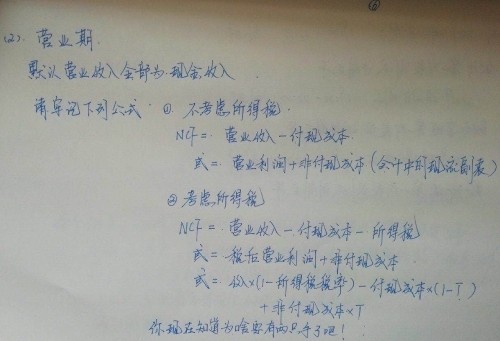 (2). 营业期.
默认营业收入全部为现金收入.
请牢记下列公式 ① 不考虑所得税.
NCF= 营业收入-付现成本
或= 营业利润+非付现成本(会计中的现流副表)
② 考虑所得税
NCF= 营业收入-付现成本-所得税
或= 税后营业利润+非付现成本
或= 收入×(1-所得税税率)-付现成本×(1-T)
+非付现成本×T
你现在知道为啥要有两只手了吧!